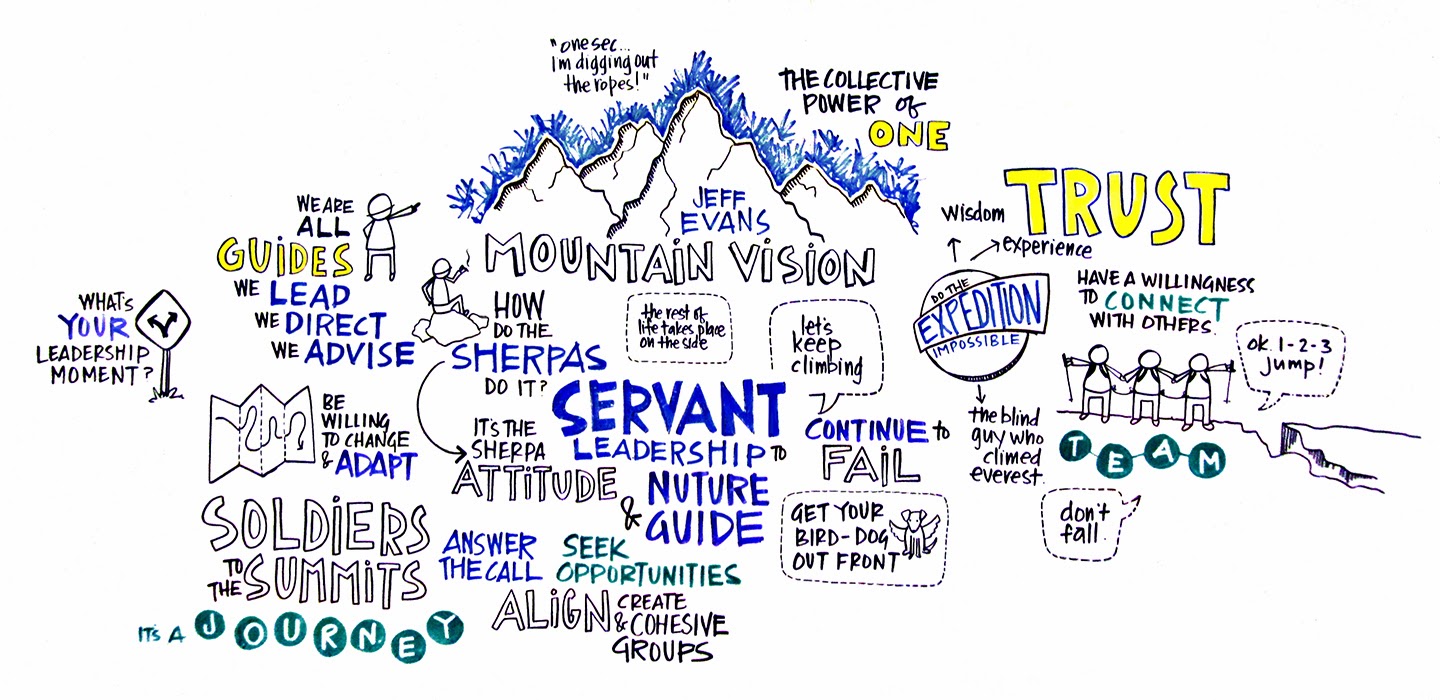 "one sec...
I'm digging out
the ropes!"
THE COLLECTIVE
POWER of
ONE
JEFF
EVANS
MOUNTAIN VISION
WE ARE
ALL
GUIDES
WE LEAD
WE DIRECT
WE ADVISE
WHAT'S
YOUR
LEADERSHIP
MOMENT?
BE
WILLING
TO CHANGE
& ADAPT
HOW
DO THE
SHERPAS
DO IT?
IT'S THE
SHERPA
ATTITUDE
the rest of
life takes place
on the side
let's
keep
climbing
SERVANT
LEADERSHIP TO
NUTURE
& GUIDE
CONTINUE to
FAIL
GET YOUR
BIRD-DOG
OUT FRONT
SOLDIERS
TO
THE SUMMITS
IT'S A JOURNEY
ANSWER
THE CALL
SEEK
OPPORTUNITIES
ALIGN & CREATE
COHESIVE
GROUPS
TRUST
wisdom
experience
DO THE
EXPEDITION
IMPOSSIBLE
the blind
guy who
climed
everest.
HAVE A WILLINGNESS
TO CONNECT
WITH OTHERS.
ok. 1-2-3
jump!
TEAM
don't
fall.